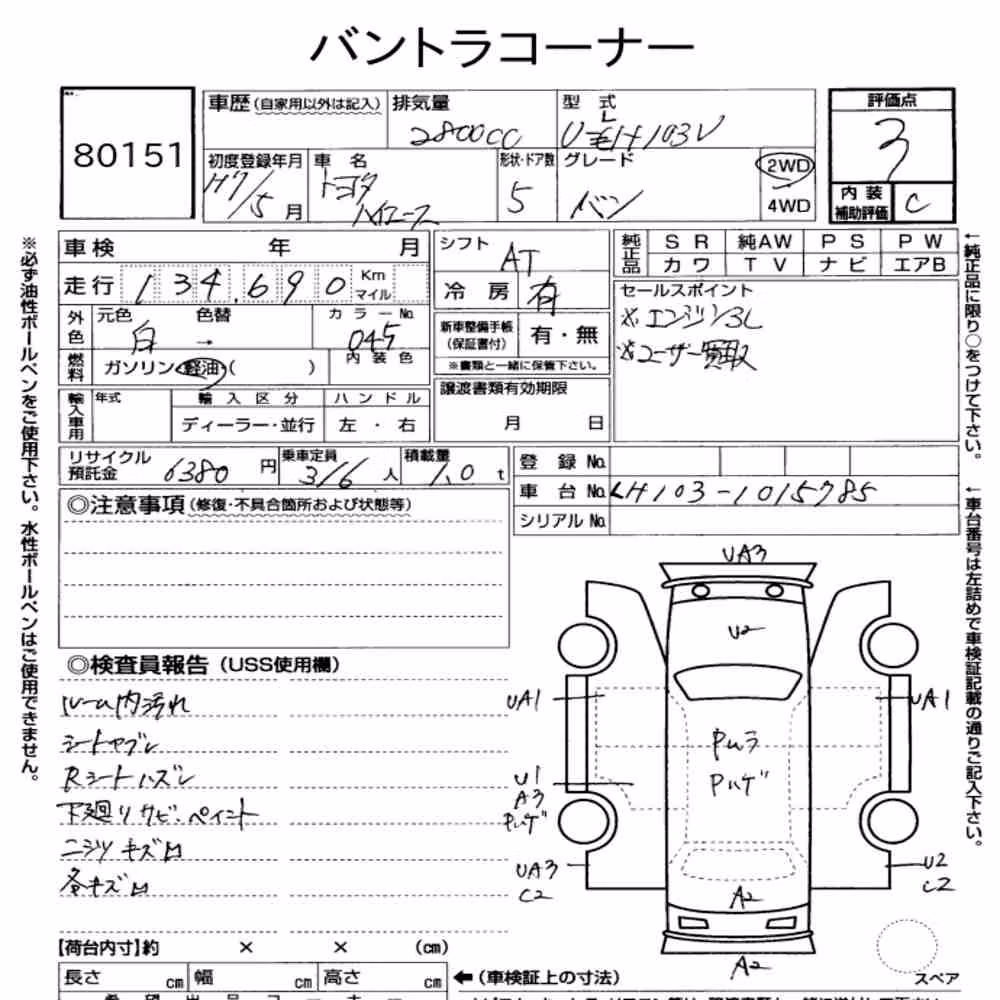 バントラコーナー
80151
車歴 (自家用以外は記入)
排気量
2800cc
型式
評価点
3
初度登録年月
H7/5月
車名
トヨタ
ハイエース
形状・ドア数
5
グレード
バン
2WD
4WD
内装
補助評価
C
車検 年 月
シフト
AT
純正品
SR 純AW PS PW
カワ TV ナビ エアB
走行 134,690 Km
マイル
冷房 有
セールスポイント
※エンジン3L
※ユーザー買取
外色
元色 色替 カラーNo.
白 → 045
新車整備手帳
(保証書付)
有・無
※書類と一緒に保管下さい。
燃料
ガソリン・軽油・( )
内装色
譲渡書類有効期限
月 日
輸入車用
年式
輸入区分 ハンドル
ディーラー・並行 左・右
リサイクル
預託金
6380円
乗車定員
3/6人
積載量
1.0t
登録No.
車台No. LH103-1015785
シリアルNo.
◎注意事項 (修復・不具合箇所および状態等)
◎検査員報告 (USS使用欄)
ルーム内汚れ
シートヤブレ
Rシートハズレ
下廻りサビ・ペイント
ニジリキズ凹
各キズ凹
UA3
U2
UA1
UA1
Pムラ
Pハゲ
U1
A3
Pハゲ
UA3
C2
U2
C2
A2
A2
スペア
【荷台内寸】約 × × (cm)
長さ cm 幅 cm 高さ cm
←(車検証上の寸法)
※必ず油性ボールペンをご使用下さい。水性ボールペンはご使用できません。
←純正品に限り○をつけて下さい。
←車台番号は左詰めで車検証記載の通りご記入下さい。